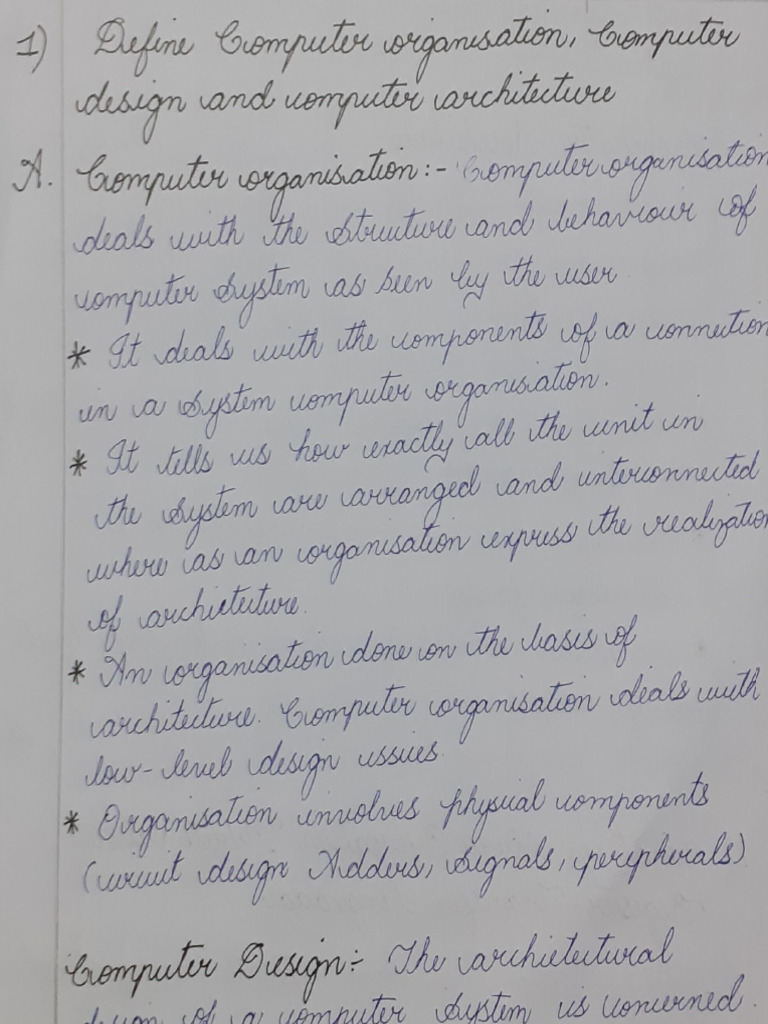 1) Define Computer organisation, Computer
design and computer architecture
A. Computer organisation:- Computer organisation
deals with the structure and behaviour of
computer system as seen by the user
* It deals with the components of a connection
in a system computer organisation.
* It tells us how exactly all the unit in
the system are arranged and interconnected
where as an organisation express the realization
of archietecture.
* An organisation done on the basis of
architecture. Computer organisation deals with
low-level design issues.
* Organisation involves physical components
(circuit design Adders, Signals, peripherals)
Computer Design:- The archietectural
design of a computer system is concerned.